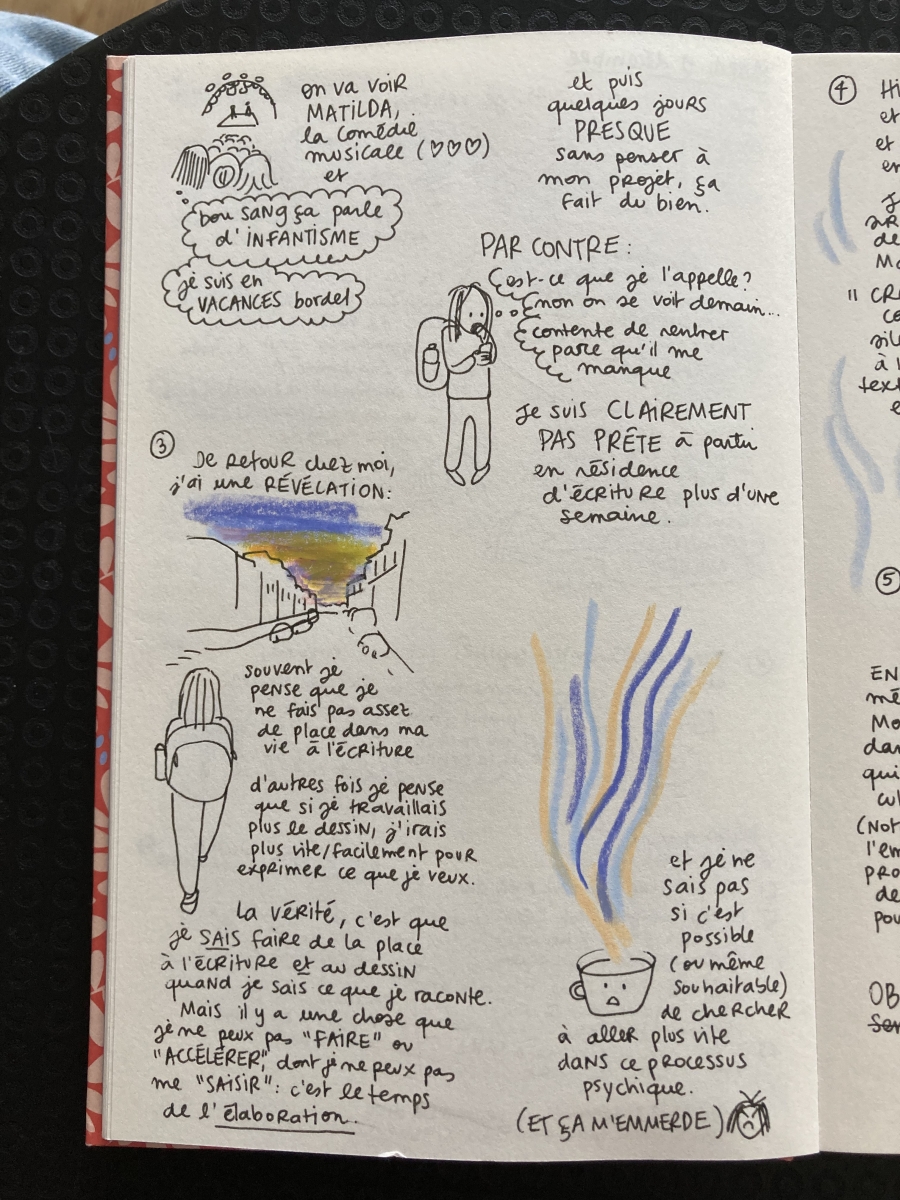 on va voir
MATILDA,
la comédie
musicale (♡♡♡)
et
bon sang ça parle
d'INFANTISME
je suis en
VACANCES bordel
et puis
quelques jours
PRESQUE
sans penser à
mon projet, ça
fait du bien.
PAR CONTRE:
est-ce que je l'appelle?
non on se voit demain...
contente de rentrer
parce qu'il me
manque
Je suis CLAIREMENT
PAS PRÊTE à partir
en résidence
d'écriture plus d'une
semaine.
③
De retour chez moi,
j'ai une RÉVÉLATION:
souvent je
pense que je
ne fais pas assez
de place dans ma
vie à l'écriture
d'autres fois je pense
que si je travaillais
plus le dessin, j'irais
plus vite/facilement pour
exprimer ce que je veux.
la vérité, c'est que
je SAIS faire de la place
à l'écriture et au dessin
quand je sais ce que je raconte.
Mais il y a une chose que
je ne peux pas "FAIRE" ou
"ACCÉLÉRER", dont je ne peux pas
me "SAISIR": c'est le temps
de l'élaboration.
et je ne
sais pas
si c'est
possible
(ou même
souhaitable)
de chercher
à aller plus vite
dans ce processus
psychique.
(ET ÇA M'EMMERDE)
④
et
et
de
"CR
à l
⑤
EN
mê
Mo
dan
qui
(Not
l'em
pro
de
pou
OB